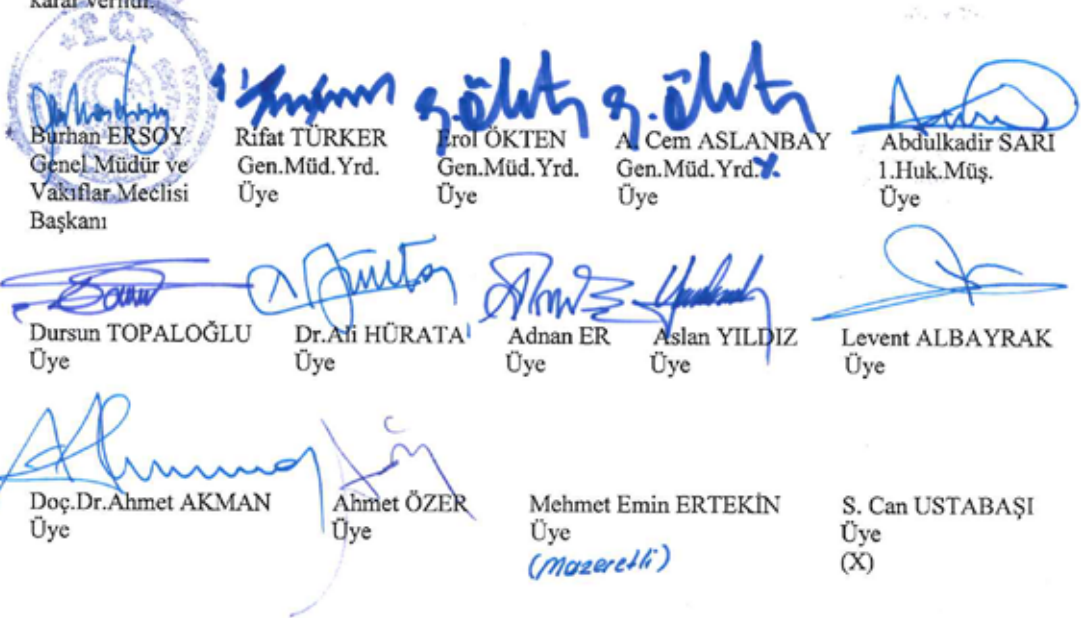 karar verildi.
T.C.
Burhan ERSOY
Genel Müdür ve
Vakıflar Meclisi
Başkanı
Rıfat TÜRKER
Gen.Müd.Yrd.
Üye
Erol ÖKTEN
Gen.Müd.Yrd.
Üye
A. Cem ASLANBAY
Gen.Müd.Yrd.Y.
Üye
Abdulkadir SARI
1.Huk.Müş.
Üye
Dursun TOPALOĞLU
Üye
Dr.Ali HÜRATA
Üye
Adnan ER
Üye
Aslan YILDIZ
Üye
Levent ALBAYRAK
Üye
Doç.Dr.Ahmet AKMAN
Üye
Ahmet ÖZER
Üye
Mehmet Emin ERTEKİN
Üye
(Mazeretli)
S. Can USTABAŞI
Üye
(X)